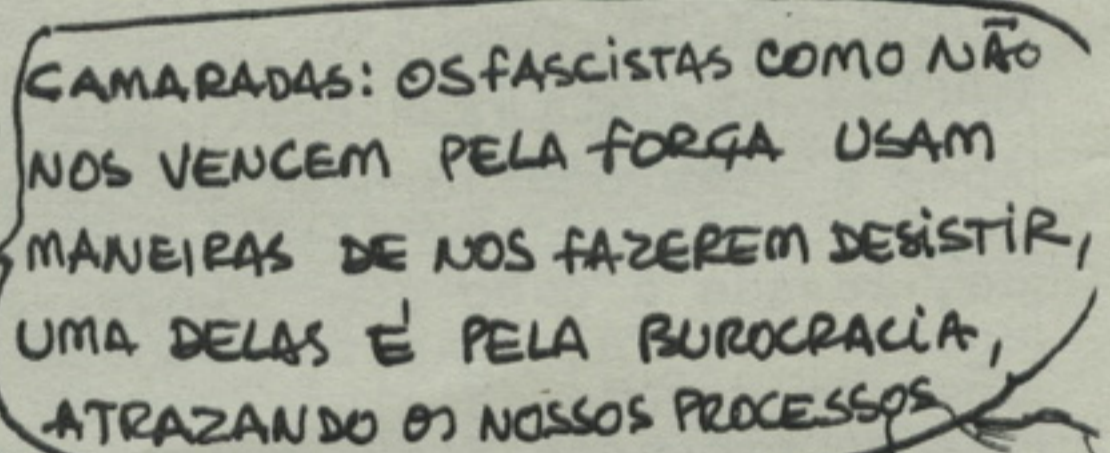 CAMARADAS: OS FASCISTAS COMO NÃO
NOS VENCEM PELA FORÇA USAM
MANEIRAS DE NOS FAZEREM DESISTIR,
UMA DELAS É PELA BUROCRACIA,
ATRAZANDO OS NOSSOS PROCESSOS